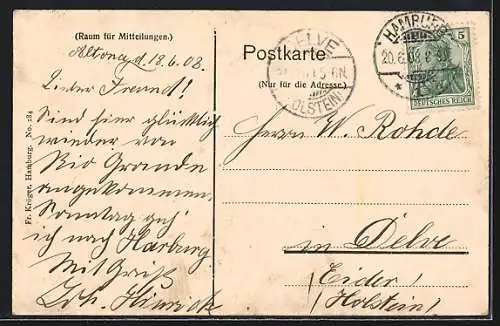 (Raum für Mitteilungen.)
Altona, d. 18.6.08.
Lieber Freund!
Sind hier glücklich
wieder von
Rio Grande
angekommen.
Sonntag geh'
ich nach Harburg
Mit Gruß
Joh. Hinrich
Fr. Krüger, Hamburg. No. 184
Postkarte
(Nur für die Adresse.)
DELVE
HOLSTEIN
HAMBURG
20.6.08
5
DEUTSCHES REICH
Herrn W. Rohde
in Delve
(Eider)
(Holstein)